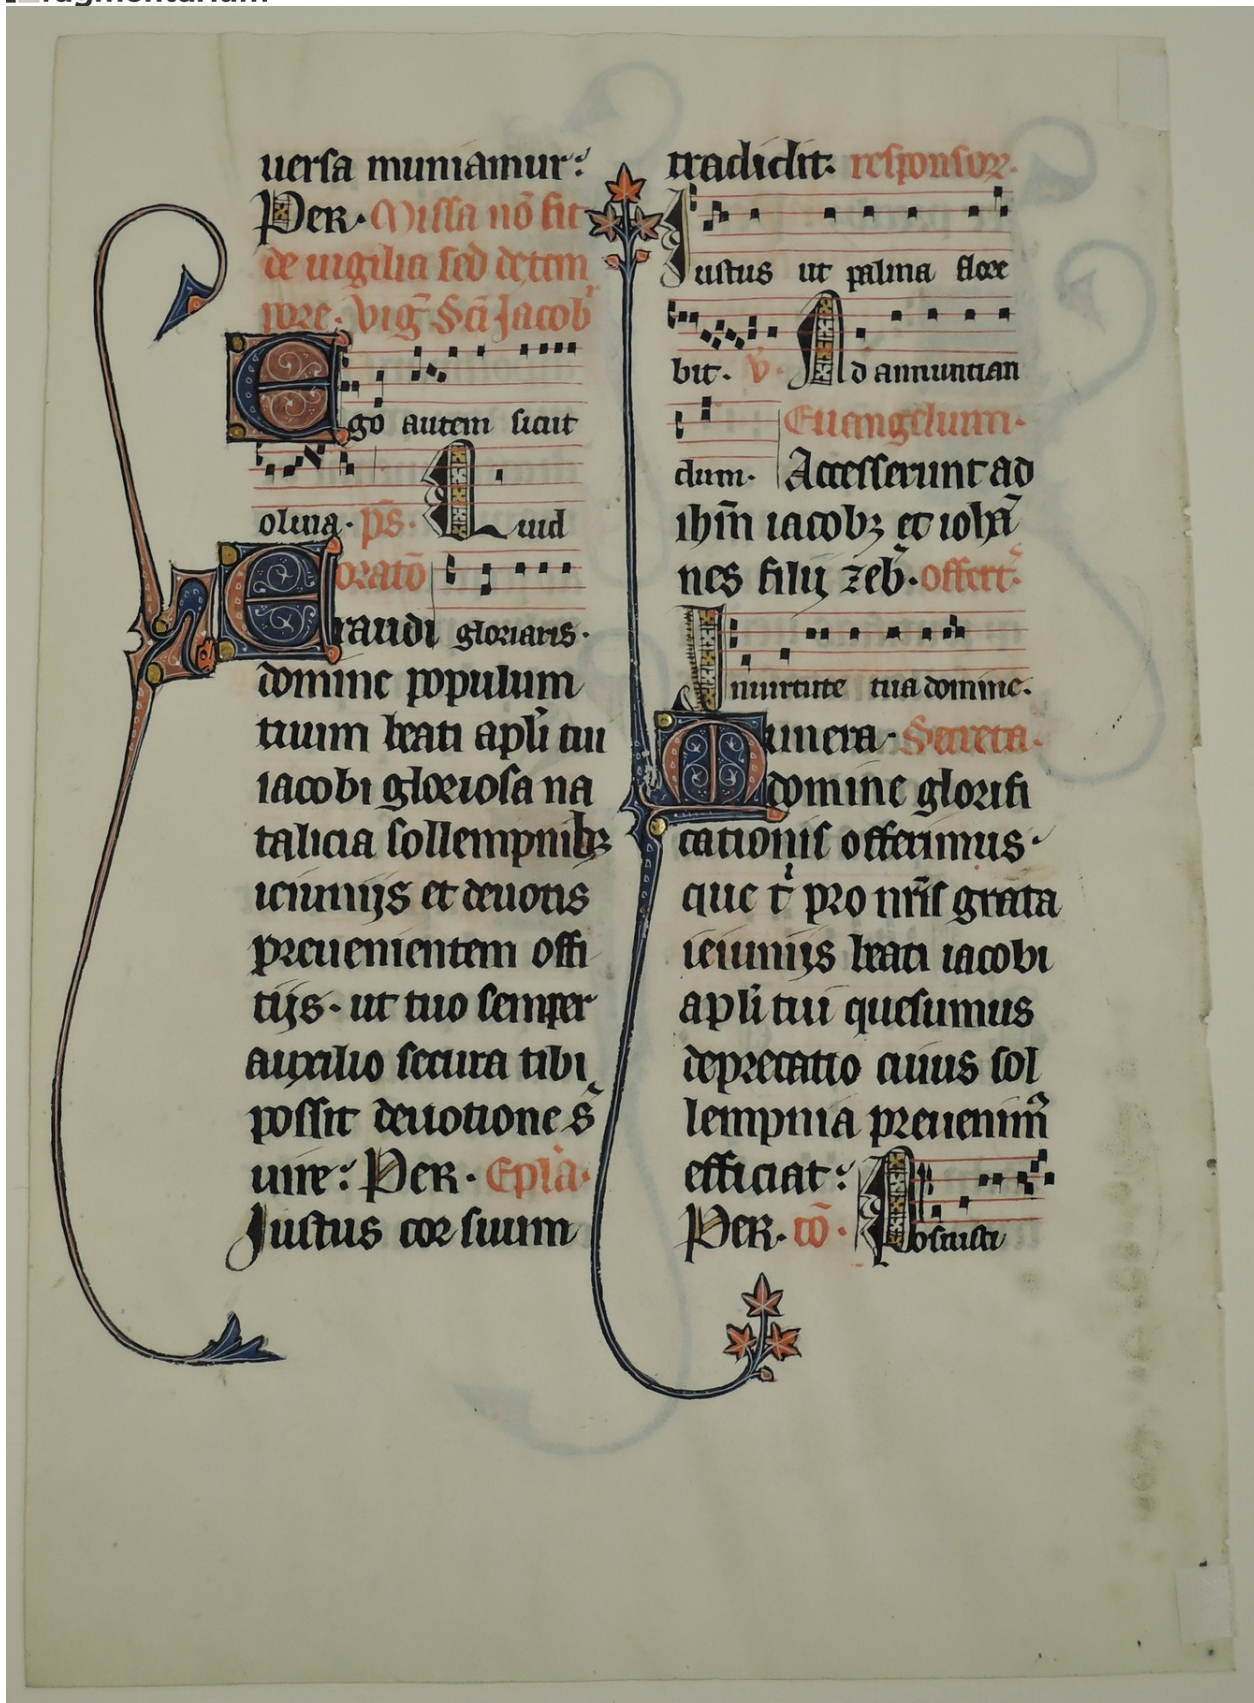 uersa muniamur:
Per. Missa nō fit
de uigilia sed de tem
pore. Vig̃ Sc̃i Jacobi
Ego autem sicut
oliua. p̄s. Quid
oratō
Exaudi gloriaris.
domine populum
tuum beati apl̃i tui
iacobi gloriosa na
talicia sollempnibꝫ
ieiunijs et deuotis
preuenientem offi
tijs. ut tuo semper
auxilio secura tibi
possit deuotione s̃
uire: Per. Epl̃a.
Justus cor suum
tradidit: responsor.
Justus ut palma flore
bit. v̄. Ad annuntian
Euangelium.
dum. Accesserunt ad
ihm̃ iacobꝫ et ioha᷈
nes filij zeb̃. offert̃.
Inuirtute tua domine.
Munera. Secreta.
domine glorifi
cationis offerimus.
que t͛ pro nr̃is grata
ieiunijs beati iacobi
apl̃i tui quesumus
deprecatio cuius sol
lempnia preuenim᷈
efficiat:
Per. cō. Posuisti